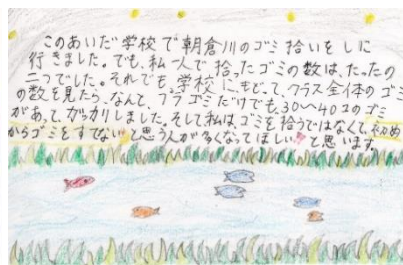 このあいだ学校で朝倉川のゴミ拾いをしに
行きました。でも、私一人で拾ったゴミの数は、たったの
二つでした。それでも、学校にもどって、クラス全体のゴミ
の数を見たら、なんと、プラゴミだけでも、30〜40コのゴミ
があって、がっかりしました。そして私は、ゴミを拾うではなくて、初め
からゴミをすてないと思う人が多くなってほしいと思います。